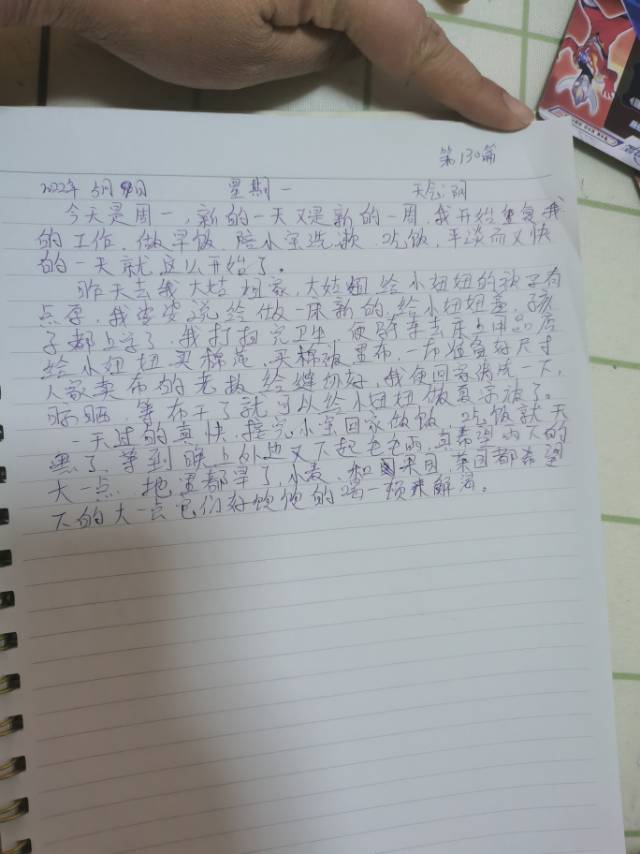 第130篇
2022年 5月9日 星期一 天气:阴
今天是周一,新的一天又是新的一周,我开始重复我
的工作,做早饭 陪小宝洗漱 吃饭,平淡而又快
的一天就这么开始了。
昨天去我大姑姐家,大姑姐给小妞妞的被子有
点厚,我婆婆说给做一床新的,给小妞妞盖,孩
子都上学了,我打扫完卫生,便骑车去床上用品店
给小妞妞买棉花,买棉被里布,一布准备好尺寸
人家卖布的老板给缝纫好,我便回家清洗一下,
晾晒,等布干了就可以给小妞妞做夏凉被了。
一天过的真快,接完小宝回家做饭,吃饭就天
黑了,等到晚上外边又下起毛毛雨,真希望雨下的
大一点,把里都旱了,小麦,和果园,菜园都希望
下的大一会它们好饱饱的喝一顿来解渴。